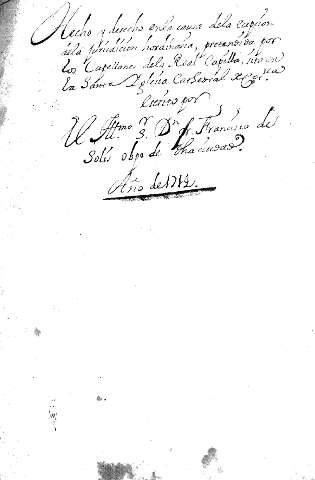 Hecho y derecho en la causa de la exepcion
de la jurisdicion hordinaria, pretendida por
los Capellanes de la Real Capilla, sita en
la Santa Iglesia Cathedral de Cor.va
Escrito por
El Illmo S.r D.n fr. Francisco de
Solis obpo de dha ciudad.
Año de 1714.